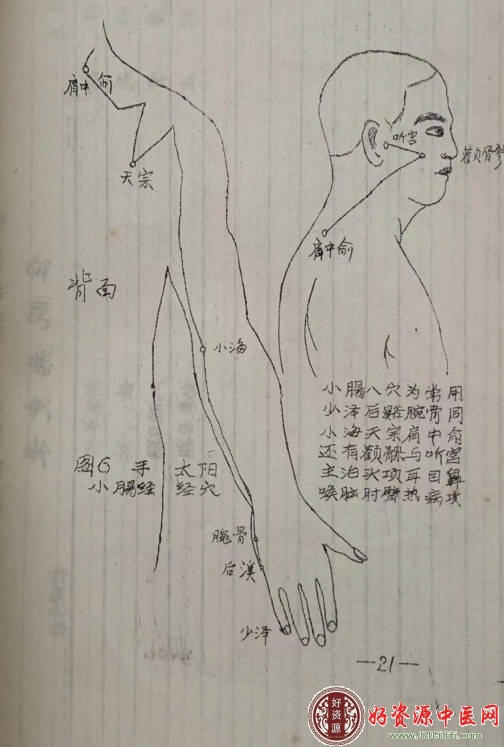 肩中俞
天宗
背面
小海
图6 手太阳
小肠经 经穴
腕骨
后溪
少泽
听宫
肩中俞
小腸八穴为常用
少泽后谿腕骨同
小海天宗肩中俞
还有颧髎与听宫
主治头项耳目鼻
喉肘臂热病项
—21—
好资源中医网
www.JMU5166.com
好资源